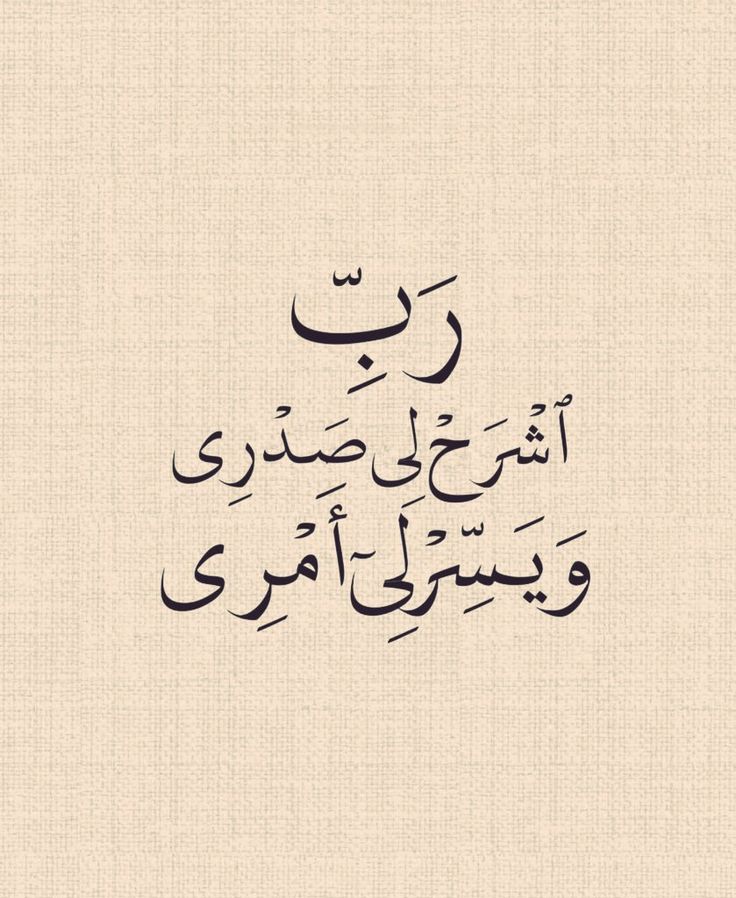 رَبِّ
ٱشْرَحْ لِى صَدْرِى
وَيَسِّرْ لِىٓ أَمْرِى